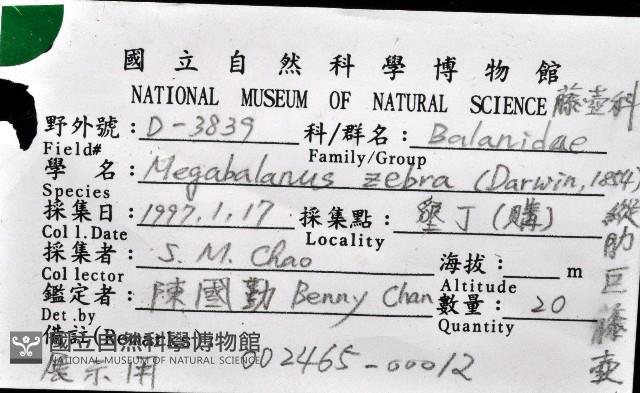 國立自然科學博物館
NATIONAL MUSEUM OF NATURAL SCIENCE 藤壺科
野外號: D-3839 科/群名: Balanidae
Field# Family/Group
學名: Megabalanus zebra (Darwin, 1854)
Species
採集日: 1997.1.17 採集點: 墾丁(購)
Coll.Date Locality
採集者: S. M. Chao 海拔: m
Collector Altitude
鑑定者: 陳國勤 Benny Chan 數量: 20
Det.by Quantity
縱肋巨藤壺
備註(Remarks)
國立自然科學博物館
NATIONAL MUSEUM OF NATURAL SCIENCE
展示用 002465-00012